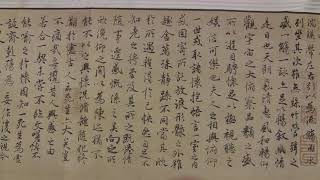 湍映帶左右引以為流觴曲水
列坐其次雖無絲竹管絃之
盛一觴一詠亦足以暢敘幽情
是日也天朗氣清惠風和暢仰
觀宇宙之大俯察品類之盛
所以遊目騁懷足以極視聽之
娛信可樂也夫人之相與俯仰
一世或取諸懷抱悟言一室之內
或因寄所託放浪形骸之外雖
趣舍萬殊靜躁不同當其欣
於所遇暫得於己快然自足不
知老之將至及其所之既惓情
隨事遷感慨係之矣向之所
欣俛仰之間以為陳迹猶不
能不以之興懷況脩短隨化終
期於盡古人云死生亦大矣豈
不痛哉每攬昔人興感之由
若合一契未嘗不臨文嗟悼不
能喻之於懷固知一死生為虛
誕齊彭殤為妄作後之視今